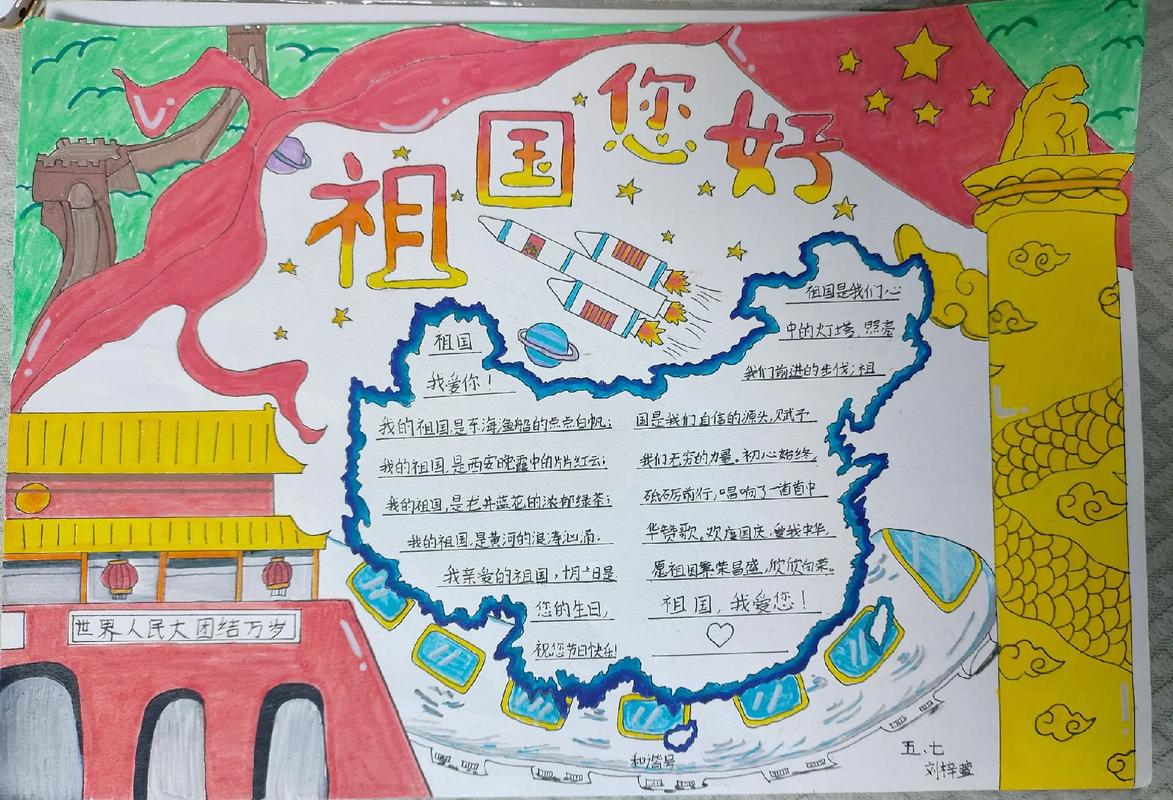 祖国您好
祖国
我爱你！
我的祖国是东海渔船的点点白帆；
我的祖国是西安晚霞中的片片红云；
我的祖国是龙井蓝花的浓郁绿茶；
我的祖国是黄河的浪涛汹涌，
我亲爱的祖国，十月一日是
您的生日，
祝您节日快乐！
祖国是我们心
中的灯塔，照亮
我们前进的步伐；祖
国是我们自信的源头，赋予
我们无穷的力量。初心始终，
砥砺前行，唱响了一首首中
华赞歌。欢度国庆，爱我中华，
愿祖国繁荣昌盛，欣欣向荣。
祖国，我爱您！
世界人民大团结万岁
和谐号
五、七
刘梓萱